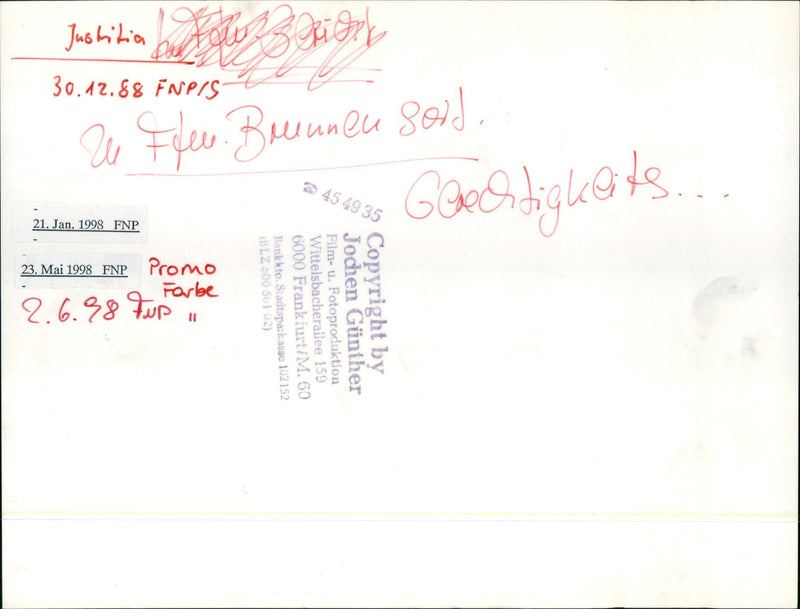 Justitia
30.12.88 FNP/S
Brunnen
Gerechtigkeits...
21. Jan. 1998 FNP
23. Mai 1998 FNP
Promo
Farbe
2.6.98 FNP "
☎ 45 49 35
Copyright by
Jochen Günther
Film- u. Fotoproduktion
Wittelsbacherallee 159
6000 Frankfurt/M. 60
Bankkto. Stadtsparkasse 102152
(BLZ 500 501 02)